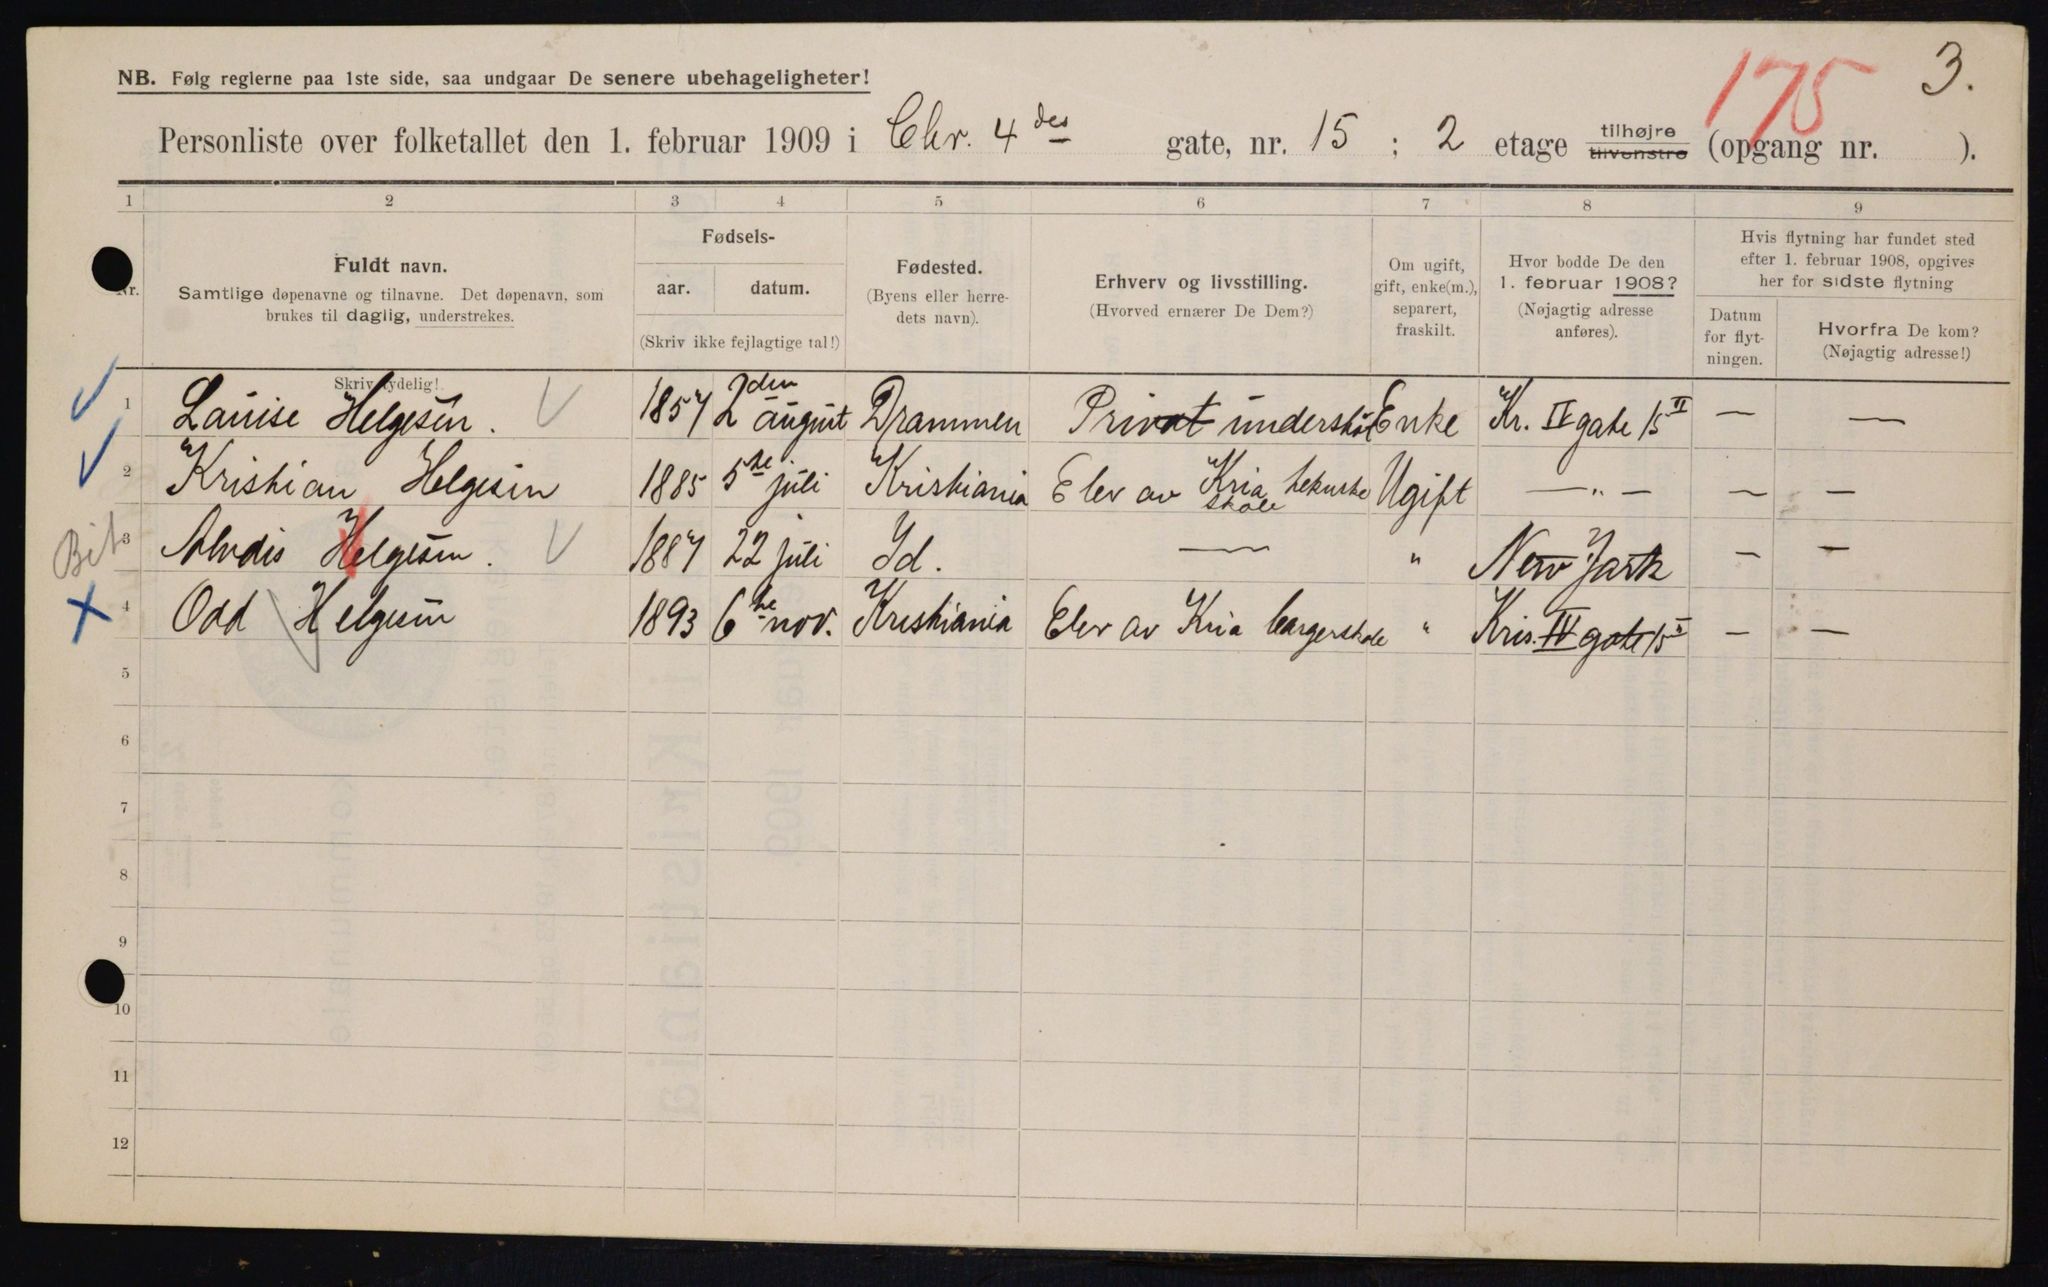 175
3.
NB. Følg reglerne paa 1ste side, saa undgaar De senere ubehageligheter!
Personliste over folketallet den 1. februar 1909 i Chr. 4 des gate, nr. 15 ; 2 etage tilhøjre tilvenstre (opgang nr. ).
1 2 3 4 5 6 7 8 9
Nr.
Fuldt navn.
Samtlige døpenavne og tilnavne. Det døpenavn, som
brukes til daglig, understrekes.
Skriv tydelig!
Fødsels-
aar. datum.
(Skriv ikke fejlagtige tal!)
Fødested.
(Byens eller herre-
dets navn).
Erhverv og livsstilling.
(Hvorved ernærer De Dem?)
Om ugift,
gift, enke(m.),
separert,
fraskilt.
Hvor bodde De den
1. februar 1908?
(Nøjagtig adresse
anføres).
Hvis flytning har fundet sted
efter 1. februar 1908, opgives
her for sidste flytning
Datum
for flyt-
ningen.
Hvorfra De kom?
(Nøjagtig adresse!)
1 Louise Helgesen. 1857 2den august Drammen Privat Enke Kr. IV gate 15 II — —
2 Kristian Helgesen 1885 5te juli Kristiania Elev av Kria tekniske skole Ugift —"— — —
3 Helgesen. 1887 22 juli Id. — " New York — —
4 Odd Helgesen 1893 6te nov. Kristiania Elev av Kria borgerskole " Kris. IV gate 15 — —
5
6
7
8
9
10
11
12